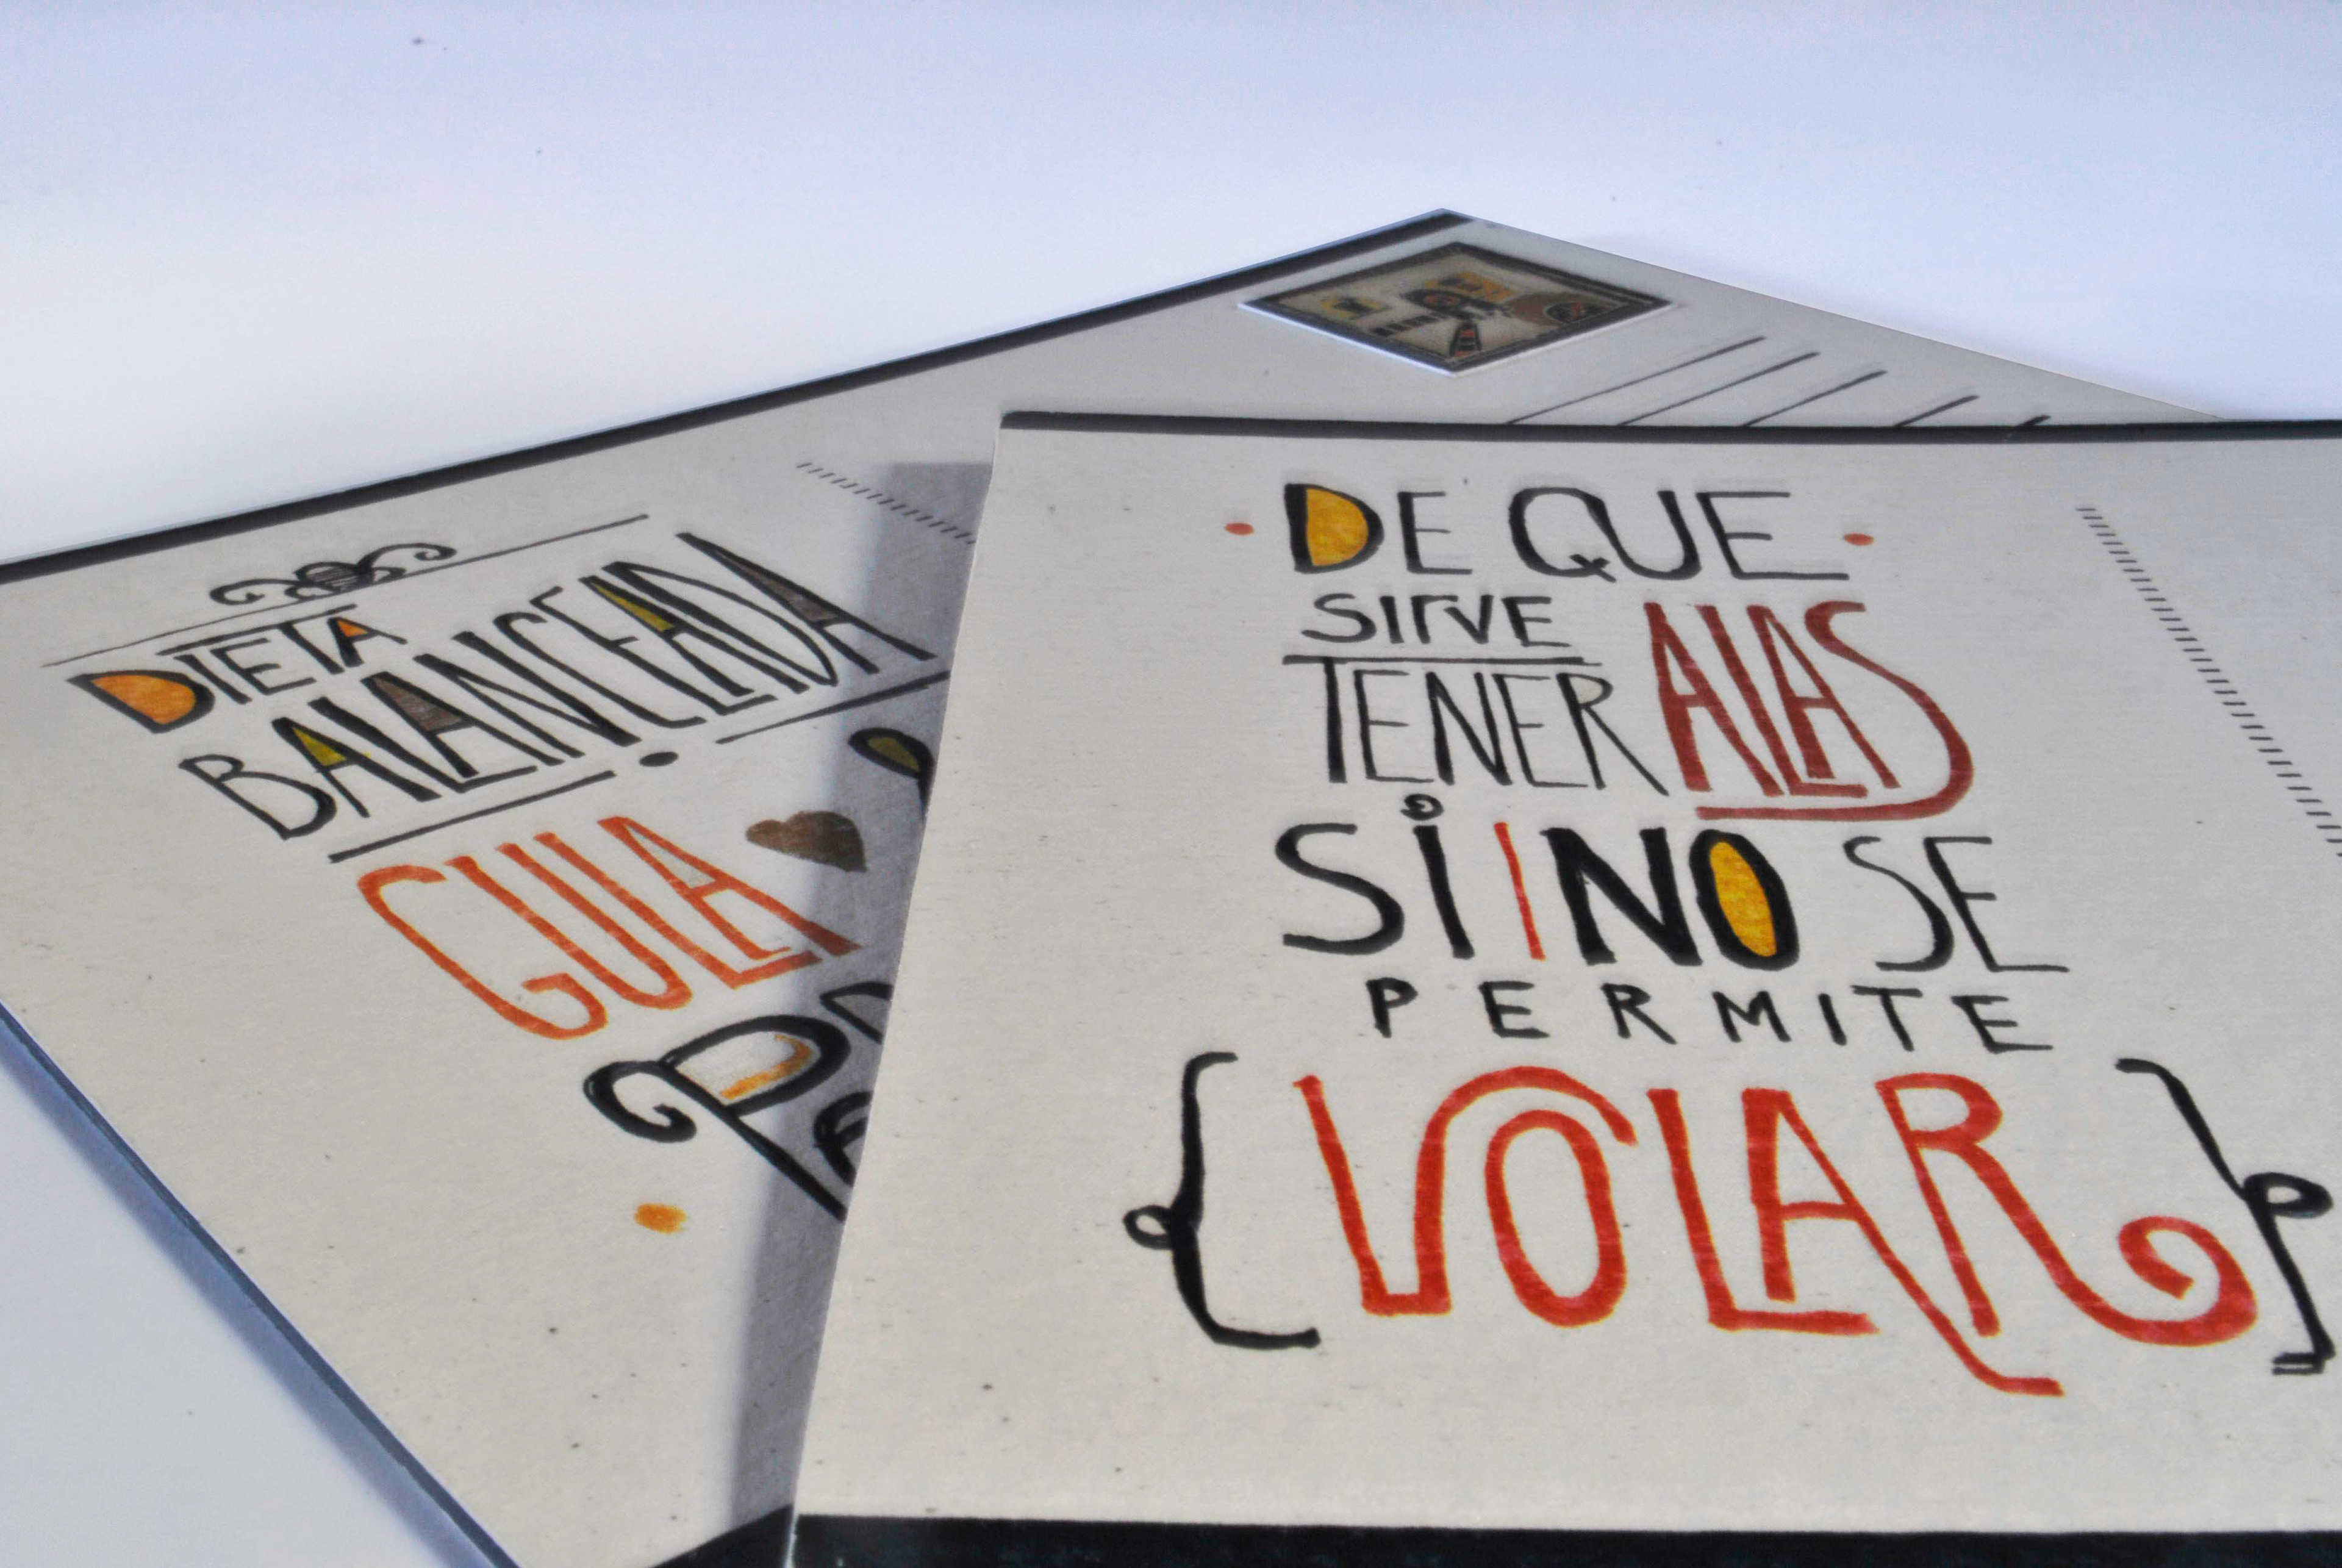 DIETA
BALANCEADA
GULA
DE QUE
SIrVE
TENER ALAS
Si I NO SE
PERMITE
{VOLAR}